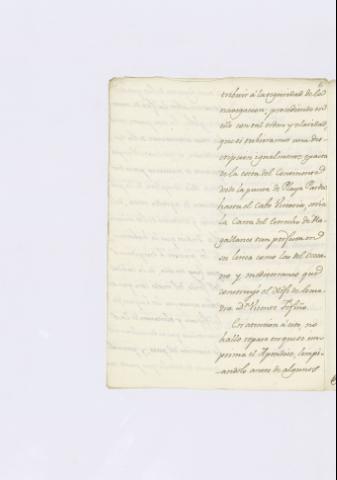 tribuir á la seguridad de la
navegacion, procediendo en
ello con tal orden y claridad,
que si tubieramos una des-
cripcion igualmente exacta
de la costa del Continente
desde la punta de Playa Parda
hasta el Cabo Victoria, seria
la Carta del Estrecho de Ma-
gallanes tan perfecta en
su linea como las del Ocea-
no y mediterraneo que
construyó el Xefe de Esqua-
dra Dn. Vicente Tofiño.
En atencion á esto, no
hallo reparo en que se im-
prima el Apendice, limpi-
andolo antes de algunos